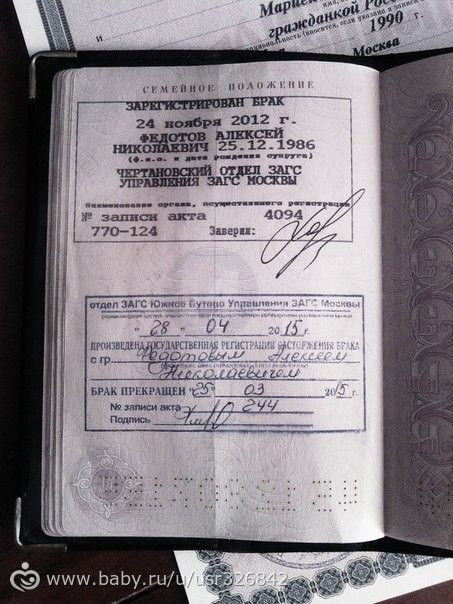 Мариен
гражданкой Рос
1990 г.
и
Москва
СЕМЕЙНОЕ ПОЛОЖЕНИЕ
ЗАРЕГИСТРИРОВАН БРАК
24 ноября 2012 г.
ФЕДОТОВ АЛЕКСЕЙ
НИКОЛАЕВИЧ 25.12.1986
(ф.и.о. и дата рождения супруга)
ЧЕРТАНОВСКИЙ ОТДЕЛ ЗАГС
УПРАВЛЕНИЯ ЗАГС МОСКВЫ
Наименование органа, осуществившего регистрацию
№ записи акта 4094
770-124 Заверил:
отдел ЗАГС Южное Бутово Управления ЗАГС Москвы
"28" 04 2015 г.
ПРОИЗВЕДЕНА ГОСУДАРСТВЕННАЯ РЕГИСТРАЦИЯ РАСТОРЖЕНИЯ БРАКА
с гр. Федотовым Алексеем
Николаевичем
БРАК ПРЕКРАЩЕН "25" 03 2015 г.
№ записи акта 244
Подпись
www.baby.ru/u/usr326842